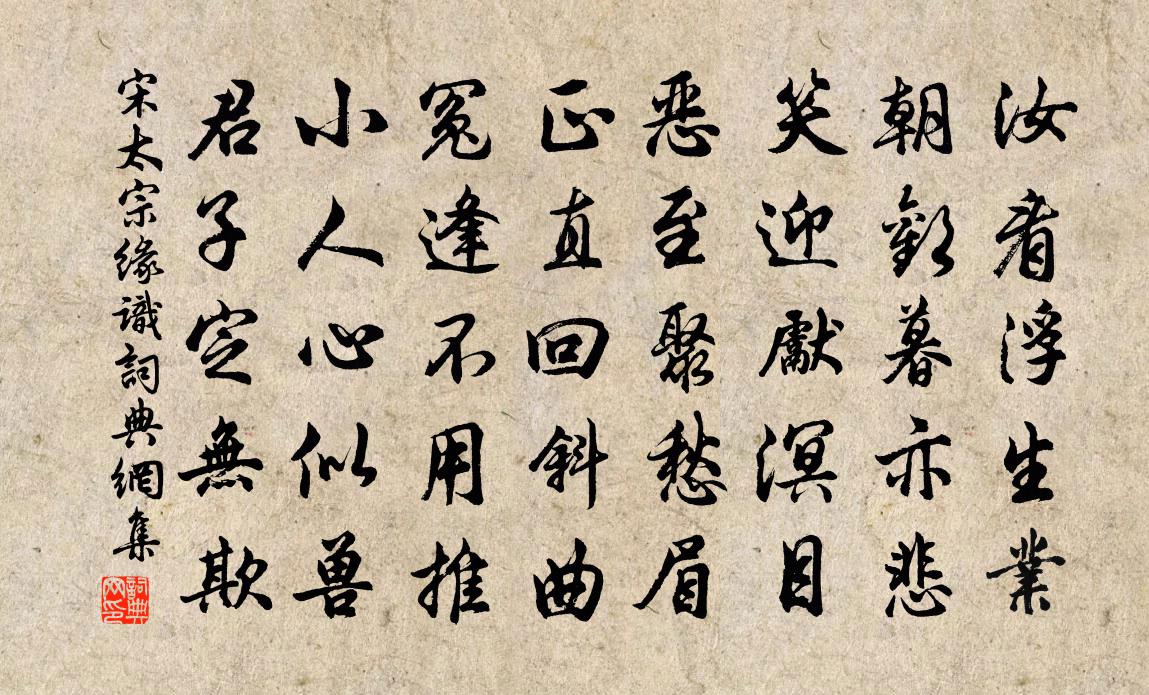 汝看浮生業
朝歡暮亦悲
笑迎獻溟目
惡至聚愁眉
正直回斜曲
冤逢不用推
小人心似兽
君子定無欺
宋太宗緣識詞典網集
詞典网印